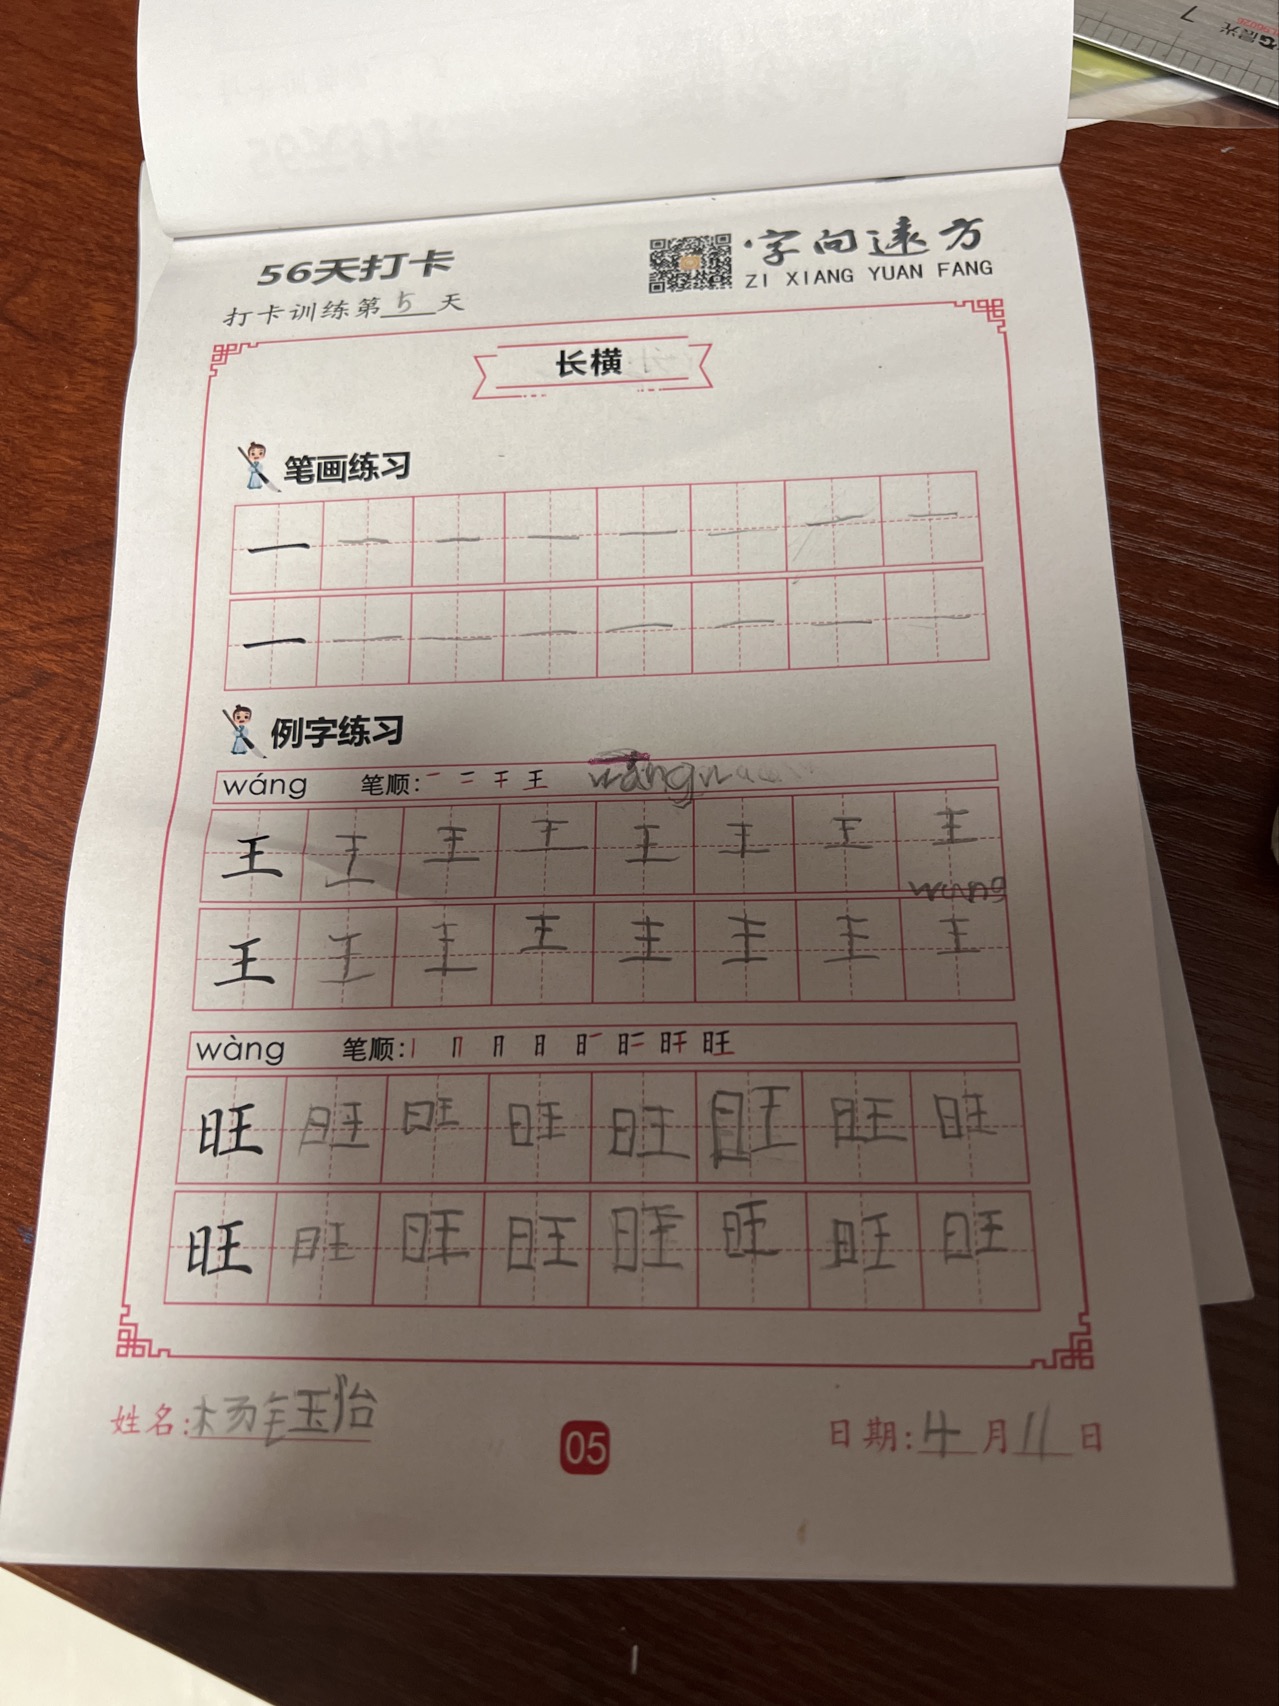 晨光
7
56天打卡
字向远方
ZI XIANG YUAN FANG
打卡训练第5天
长横
笔画练习
一 一 一 一 一 一 一 一
一 一 一 一 一 一 一 一
例字练习
wáng 笔顺: wáng
王 王 王 王 王 王 王 王
wang
王 王 王 王 王 王 王 王
wàng 笔顺:
旺 旺 旺 旺 旺 旺 旺 旺
旺 旺 旺 旺 旺 旺 旺 旺
姓名:杨钰怡
05
日期:4月11日